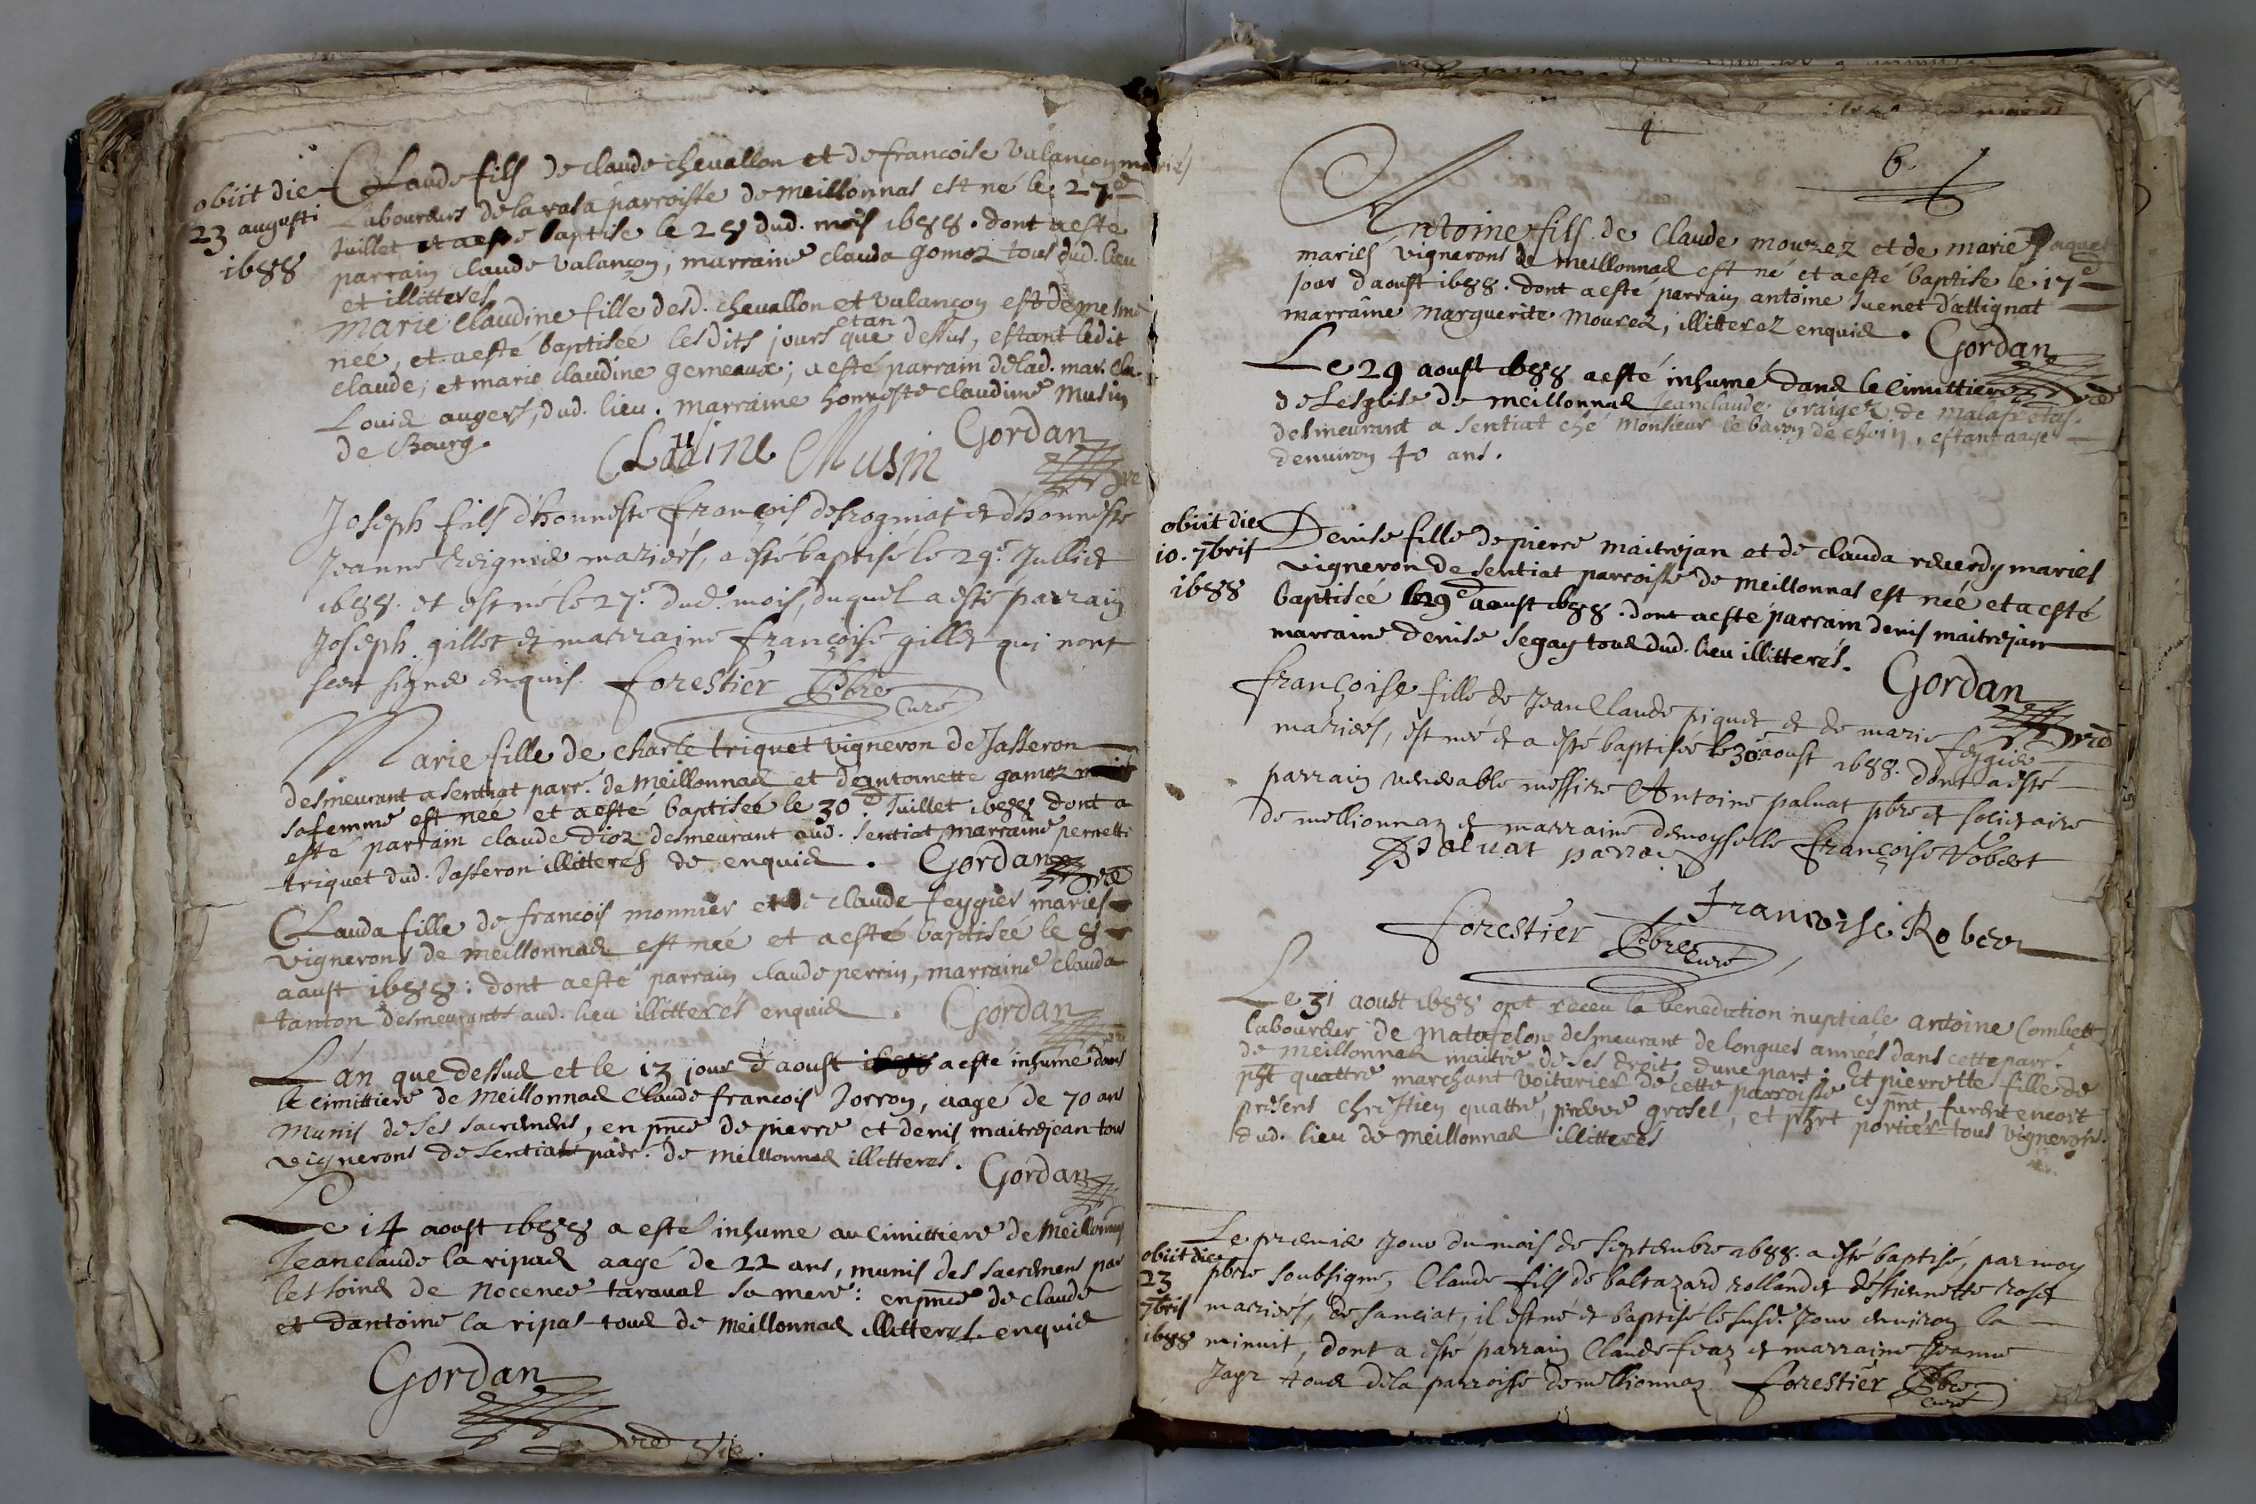 obiit die
23 augusti
1688
Claude fils de claude chevallon et de francoise valançon mariés
Laboureurs de la rasa parroisse de meillonnas est né le 27e
Juillet et a esté baptise le 28 dud. mois 1688. dont a esté
parrain claude valançon, marraine clauda gomoz tous dud. lieu
et illitterés
Marie claudine fille desd. chevallon et valançon est de mesme
neé, et a esté baptiseé lesdits jours et an que dessus, estant ledit
claude, et marie claudine gemeaux; a esté parrain de lad. mar. cla.
Louis augers, dud. lieu. marraine honneste claudine Musin
de Bourg.
Gordan vic
Claudine Musin
Joseph fils d'honneste François desrogniat et d'honneste
Jeanne mariés, a esté baptisé le 29e Julliet
1688. et est né le 27e. dud. mois, duquel a esté parrain
Joseph gillet et marraine françoise gillet qui nont
sceu signer enquis. forestier pbre
curé
Marie fille de charle triquet vigneron de Jasseron
desmeurant a sentiat parr. de meillonnas et dantoinette gamoz
sa femme est neé et a esté baptiseé le 30e. Juillet 1688 dont a
esté parrain claude dioz desmeurant aud. sentiat, marraine pernette
triquet dud. Jasseron illitterés de enquis. Gordan vic
Clauda fille de françois monnier et de claude feygier mariés
vignerons de meillonnas est neé et a esté baptiseé le 8
aoust 1688: dont a esté parrain claude perrin, marraine clauda
tanton desmeurants aud. lieu illitterés enquis. Gordan
L'an que dessus et le 13 jour d'aoust a esté inhumé dans
le cimittiere de Meillonnas Claude françois Jorron, aagé de 70 ans
munis de ses sacremens, en pnce de pierre et denis maitrejean tous
vignerons de sentiat parr. de meillonnas illitterés. Gordan
Le 14 aoust 1688 a esté inhume au cimittiere de Meillonnas
Jeanclaude la ripas aagé de 22 ans, munis des sacremens par
les soins de nocence taraval sa mere: en pnce de claude
et dantoine la ripas tous de meillonnas illitterés enquis
Gordan
vic
6.
Antoine fils de Claude mourez et de marie paquet
mariés vignerons de meillonnas est né et a esté baptise le 17e
jour daoust 1688. dont a esté parrain antoine Juenet d'attignat
marraine marguerite mourez, illitterez enquis. Gordan
Le 29 aoust 1688 a esté inhumé dans le cimittiere
de Lesglise de meillonnas Jeanclaude braiger de malafretas.
desmeurant a sentiat ché monsieur le baron de choin, estant aagé
denviron 40 ans.
obiit die
10. 7bris
1688
Denise fille de pierre maitrejan et de clauda reverdy mariés
vigneron de sentiat parroisse de meillonnas est neé et a esté
baptiseé le 29e aoust 1688. dont a esté parrain denis maitrejan
marraine denise segay tous dud. lieu illitterés.
Gordan vic
françoise fille de Jean Claude piquet et de marie feygier
mariés, est née et a esté baptisée le 30e aoust 1688. dont a esté
parrain venerable messire Antoine paluat pbre et societaire
de mellionnaz et marraine demoyselle françoise Robert
Paluat parrain
Francoise Rober
forestier pbre
curé
Le 31 aoust 1688 ont receu la benediction nuptiale antoine Combett
laboureur de matafelon desmeurant de longues anneés dans cette parr.
de meillonnas maitre de ses droit, dune part. Et pierrette fille de
quattre marchant voiturier de cette parroisse
presens chrestien quattre, pierre grosel, et portier tous vignerons
dud. lieu de meillonnas illitterés
obiit die
23
7bris
1688
Le premier jour du mois de septembre 1688. a esté baptisé, par moy
pbre soubsigné, Claude fils de baltazard rolland et destiennette roset
mariés, de sanciat, il est né et baptisé le susd. jour environ la
minuit, dont a esté parrain Claude feaz et marraine Jeanne
Jayr tous de la parroisse de mellionnaz forestier pbre
curé